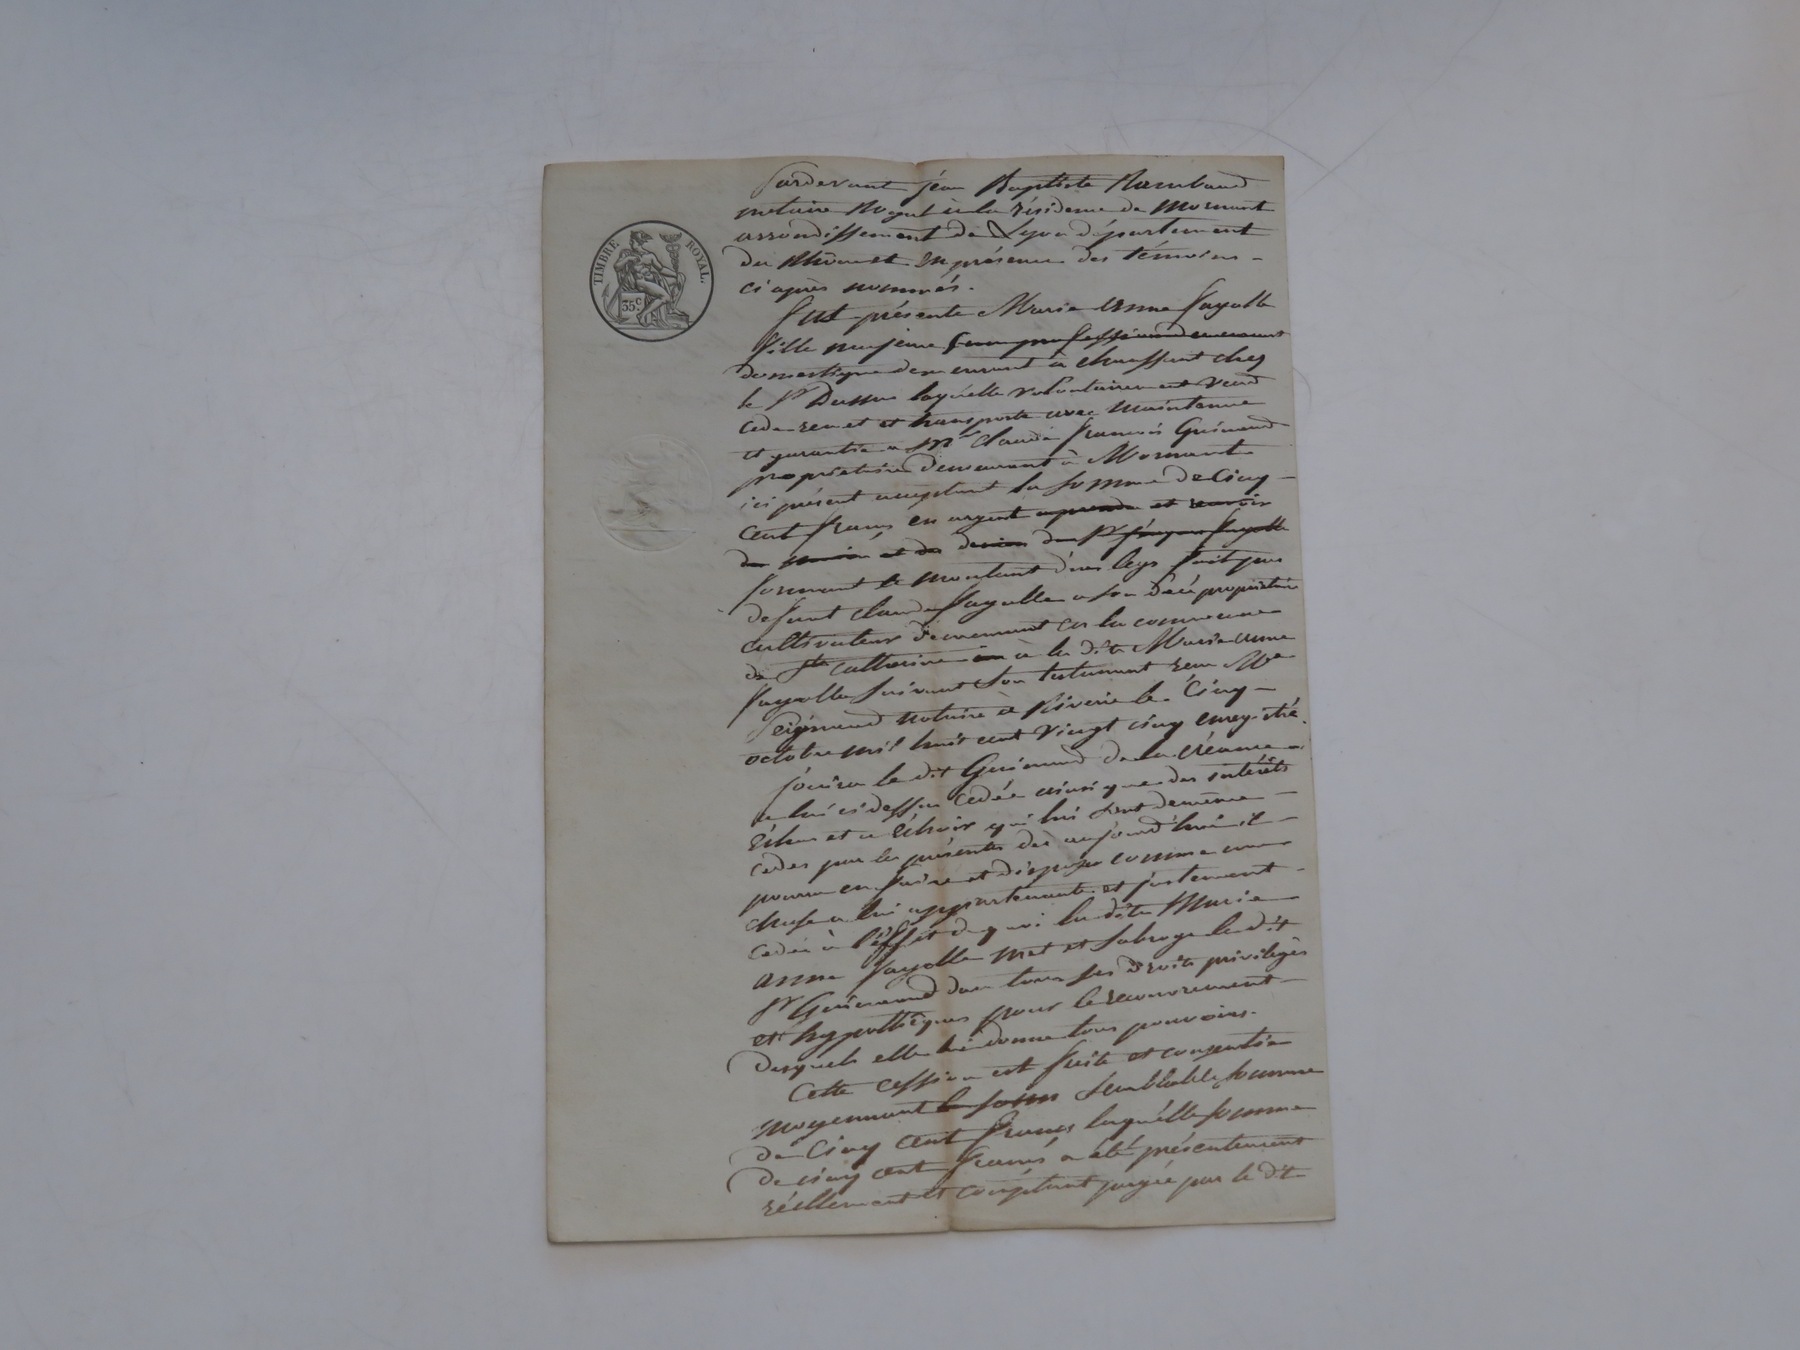 TIMBRE ROYAL.
35 c.
Pardevant jéan Baptiste Rambaud
notaire Royal à la résidence de Mornant
arrondissement de Lyon département
du Rhône et en présence des témoins
ci après nommés.
fut présente Marie Anne fayolle
fille majeure sans profession demeurant
domestique demeurant à chaussant chez
le Sr laquelle volontairement vend
cède remet et transporte avec maintenue
et garantie a Mr Claude francois Guinand
propriétaire demeurant à Mornant
ici présent acceptant la somme de Cinq
cent francs en argent a prendre et recevoir
du Sr fayolle
formant le montant d'un legs fait par
defunt claude fayolle a son décè propriétaire
cultivateur demeurant en la commune
de Ste Catherine à la dite Marie anne
fayolle suivant son testament reçu Me
notaire à Riverie le Cinq
octobre mil huit cent vingt cinq enregistré.
jouira le dit Guinand de la créance
a lui ci dessus cédée ainsi que des intérêts
échus et a échoir qui lui sont demême
cedés par les présentes dès aujourd'hui il
pourra en faire et disposer comme une
chose a lui appartenante et justement
cedée à l'éffét de quoi la dite Marie
anne fayolle met et subroge le dit
Sr Guinand dans tous ses droits privilèges
et hypothèques pour le recouvrement
desquels elle lui donne tous pouvoirs.
Cette cession est faite et consentie
moyennant la somm semblable somme
de Cinq cent francs laquélle somme
de cinq cent francs a été présentement
réellement et comptant payée par le dit